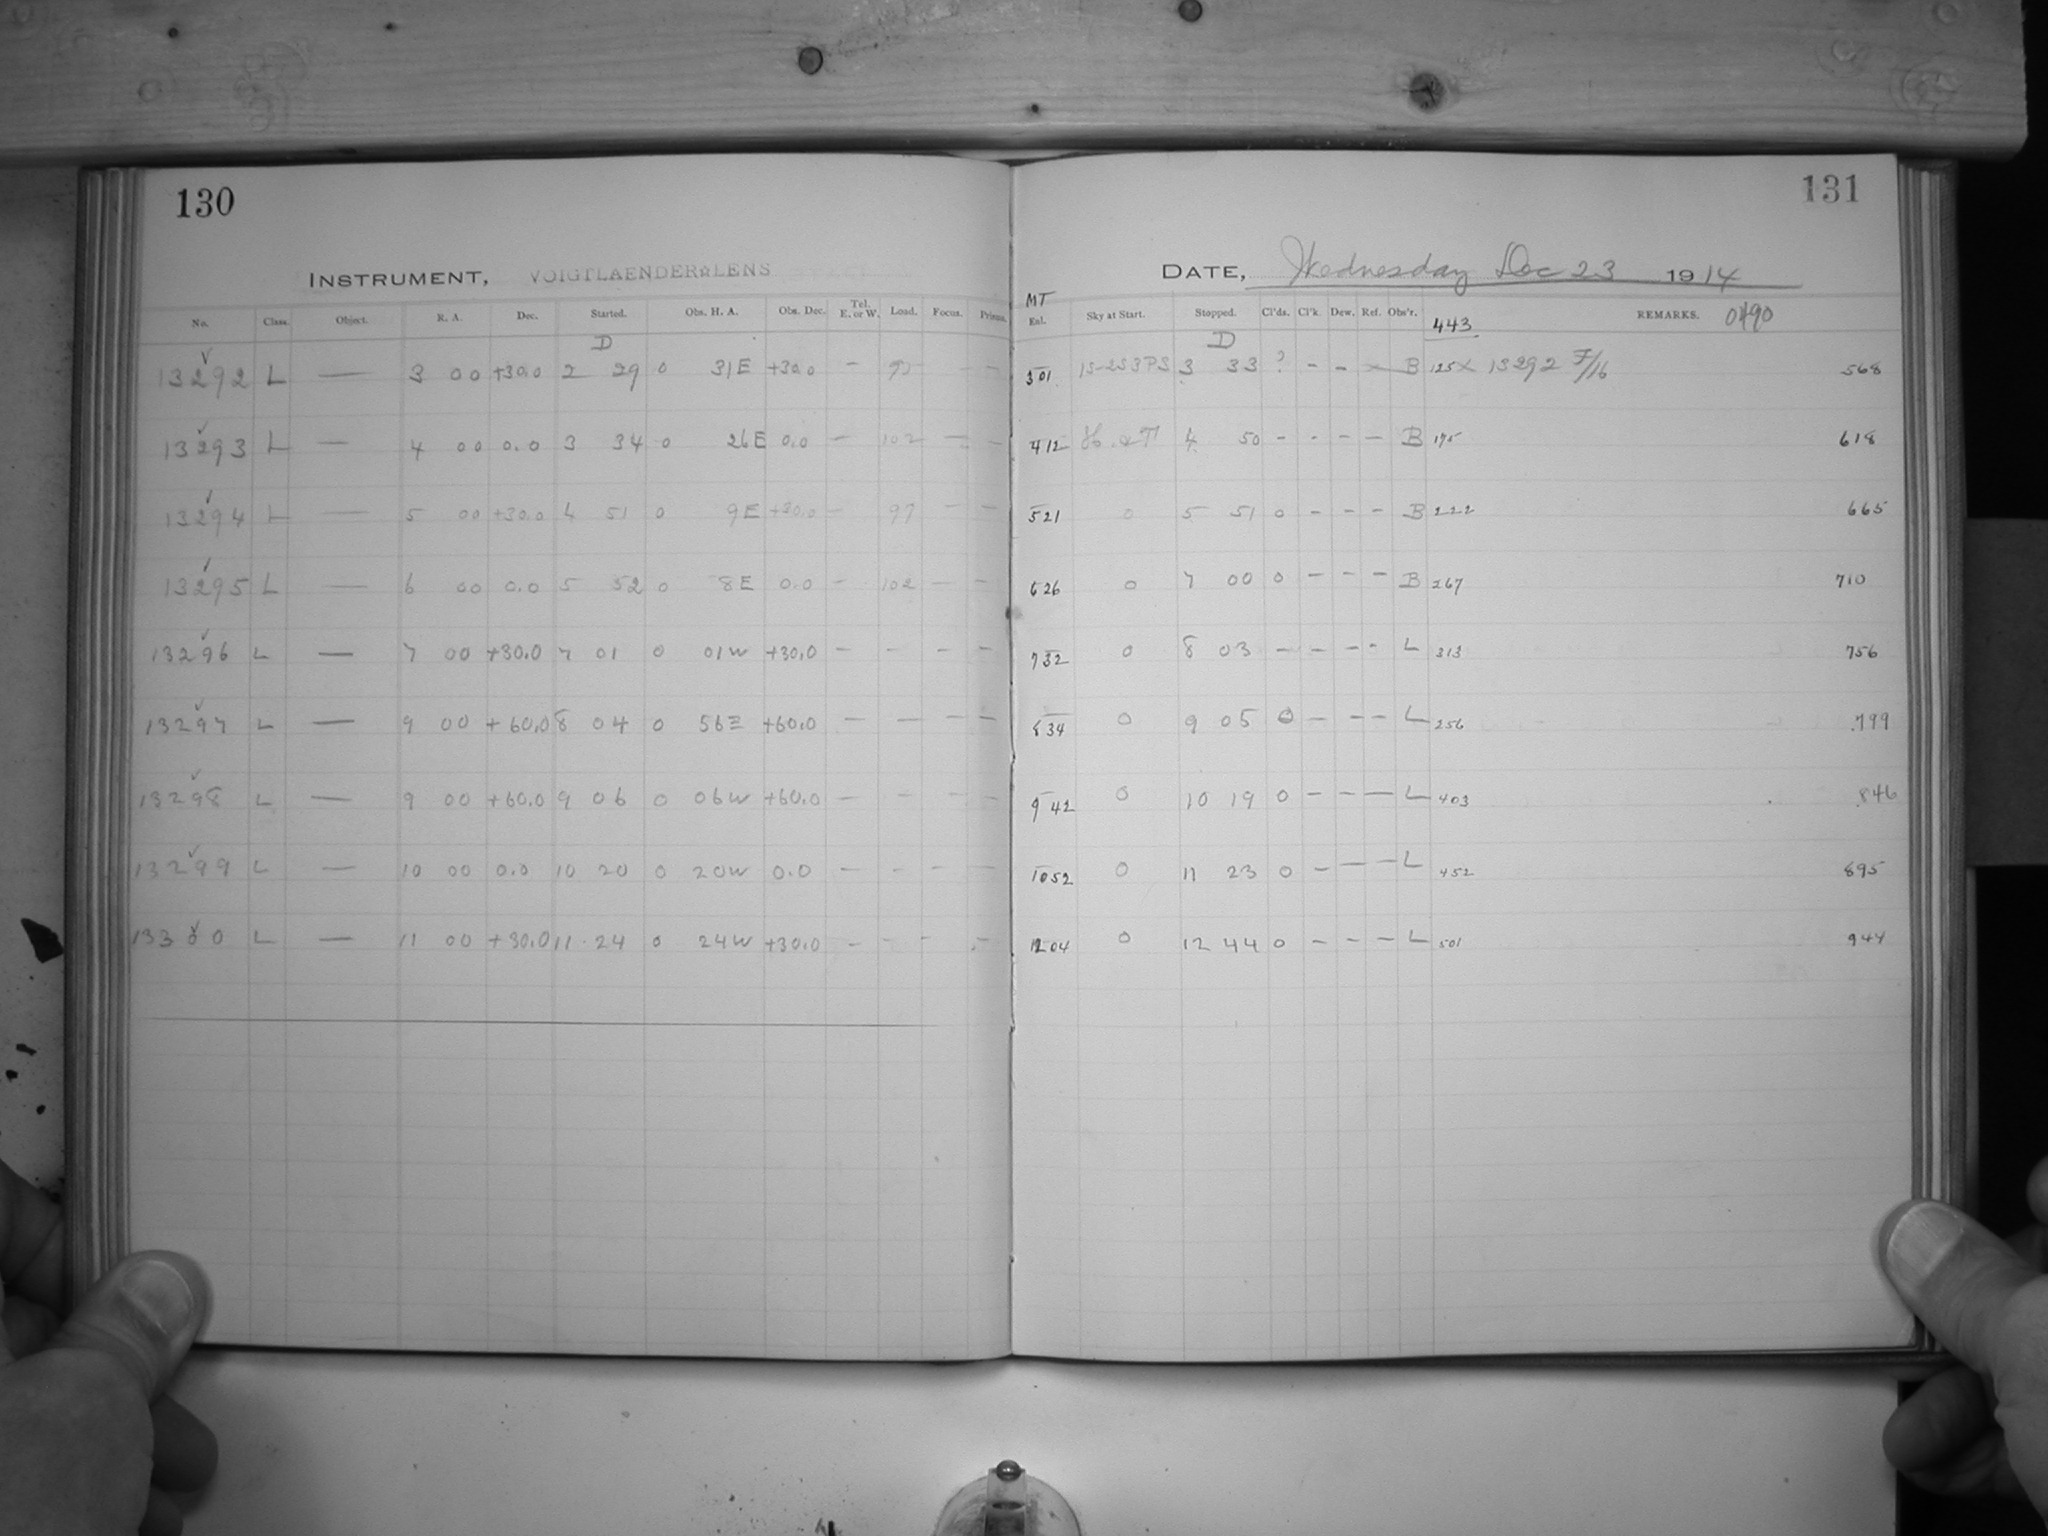 130
INSTRUMENT, VOIGTLAENDER LENS
No. Class. Object. R. A. Dec. Started. Obs. H. A. Obs. Dec. Tel. E. or W. Load. Focus. Prisms.
D
13292 L — 3 00 +30.0 2 29 0 31E +30.0 — — —
13293 L — 4 00 0.0 3 34 0 26E 0.0 — 102 — —
13294 L — 5 00 +30.0 4 51 0 9E +30.0 — 97 — —
13295 L — 6 00 0.0 5 52 0 8E 0.0 — 102 — —
13296 L — 7 00 +30.0 7 01 0 01W +30.0 — — — —
13297 L — 9 00 +60.0 8 04 0 56E +60.0 — — — —
13298 L — 9 00 +60.0 9 06 0 06W +60.0 — — — —
13299 L — 10 00 0.0 10 20 0 20W 0.0 — — — —
13300 L — 11 00 +30.0 11 24 0 24W +30.0 — — — —
131
DATE, Wednesday Dec 23 1914
MT
Exl. Sky at Start. Stopped. Cl'ds. Cl'k. Dew. Ref. Obs'r. 443 REMARKS. 0490
D
301 1S-2S3PS 3 33 ? - - - B 125 X 13292 F/16 568
412 H. & T 4 50 - - - — B 175 618
521 0 5 51 0 - - - B 222 665
626 0 7 00 0 - - - B 267 710
732 0 8 03 — — — - L 313 756
834 0 9 05 0 — — — L 256 799
942 0 10 19 0 — — — L 403 846
1052 0 11 23 0 — — — L 452 895
1204 0 12 44 0 — — — L 501 944